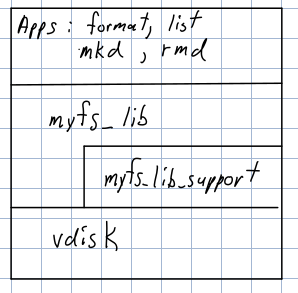 Apps: format, list
mkd, rmd
myfs_lib
myfs_lib_support
vdisk